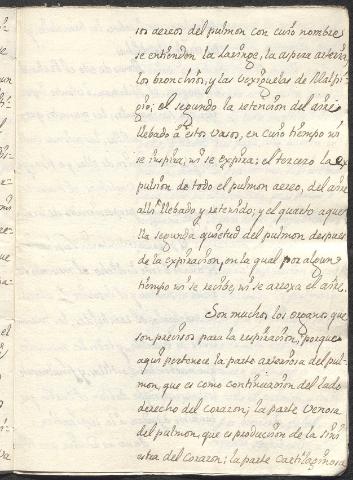 sos aereos del pulmon con cuio nombre
se entienden la laringe, la aspera arteria,
los bronchios, y las vexiguelas de Malpi-
gio; el segundo la retencion del aire
llebado à estos vasos, en cuio tiempo ni
se inspira, ni se expira; el tercero la ex
pulsion de todo el pulmon aereo, del aire
alli llebado y retenido; y el quarto aque-
lla segunda quietud del pulmon despues
de la expiracion, en la qual por algun
tiempo ni se recibe, ni se arroxa el aire.
Son muchos los organos que
son precisos para la respiracion, porque
aqui pertenece la parte arteriosa del pul-
mon, que es como continuacion del lado
derecho del corazon; la parte venosa
del pulmon, que es produccion de la sini
estra del corazon; la parte cartilaginosa